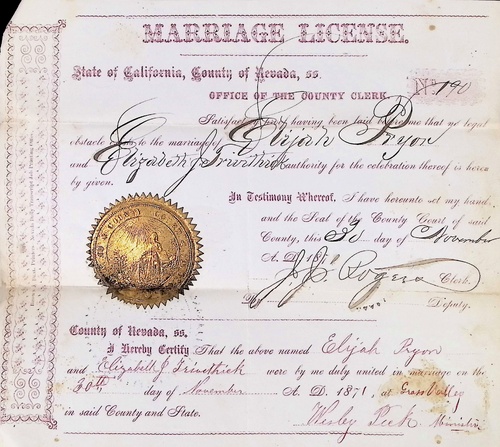 MARRIAGE LICENSE.
State of California, County of Nevada, ss.
OFFICE OF THE COUNTY CLERK.
No 190
Satisfactory proof having been laid before me that no legal
obstacle exists to the marriage of Elijah Pryon
and Elizabeth J Trivithick authority for the celebration thereof is hereby
by given.
In Testimony Whereof, I have hereunto set my hand
and the Seal of the County Court of said
County, this 30 day of November
A. D. 187
J. J. Rogers Clerk.
By Deputy.
County of Nevada, ss.
I Hereby Certify That the above named Elijah Pryon
and Elizabeth J Trivithick were by me duly united in marriage on the
30th, day of November A. D. 1871, at Grass Valley
in said County and State.
Wesley Peck Minister